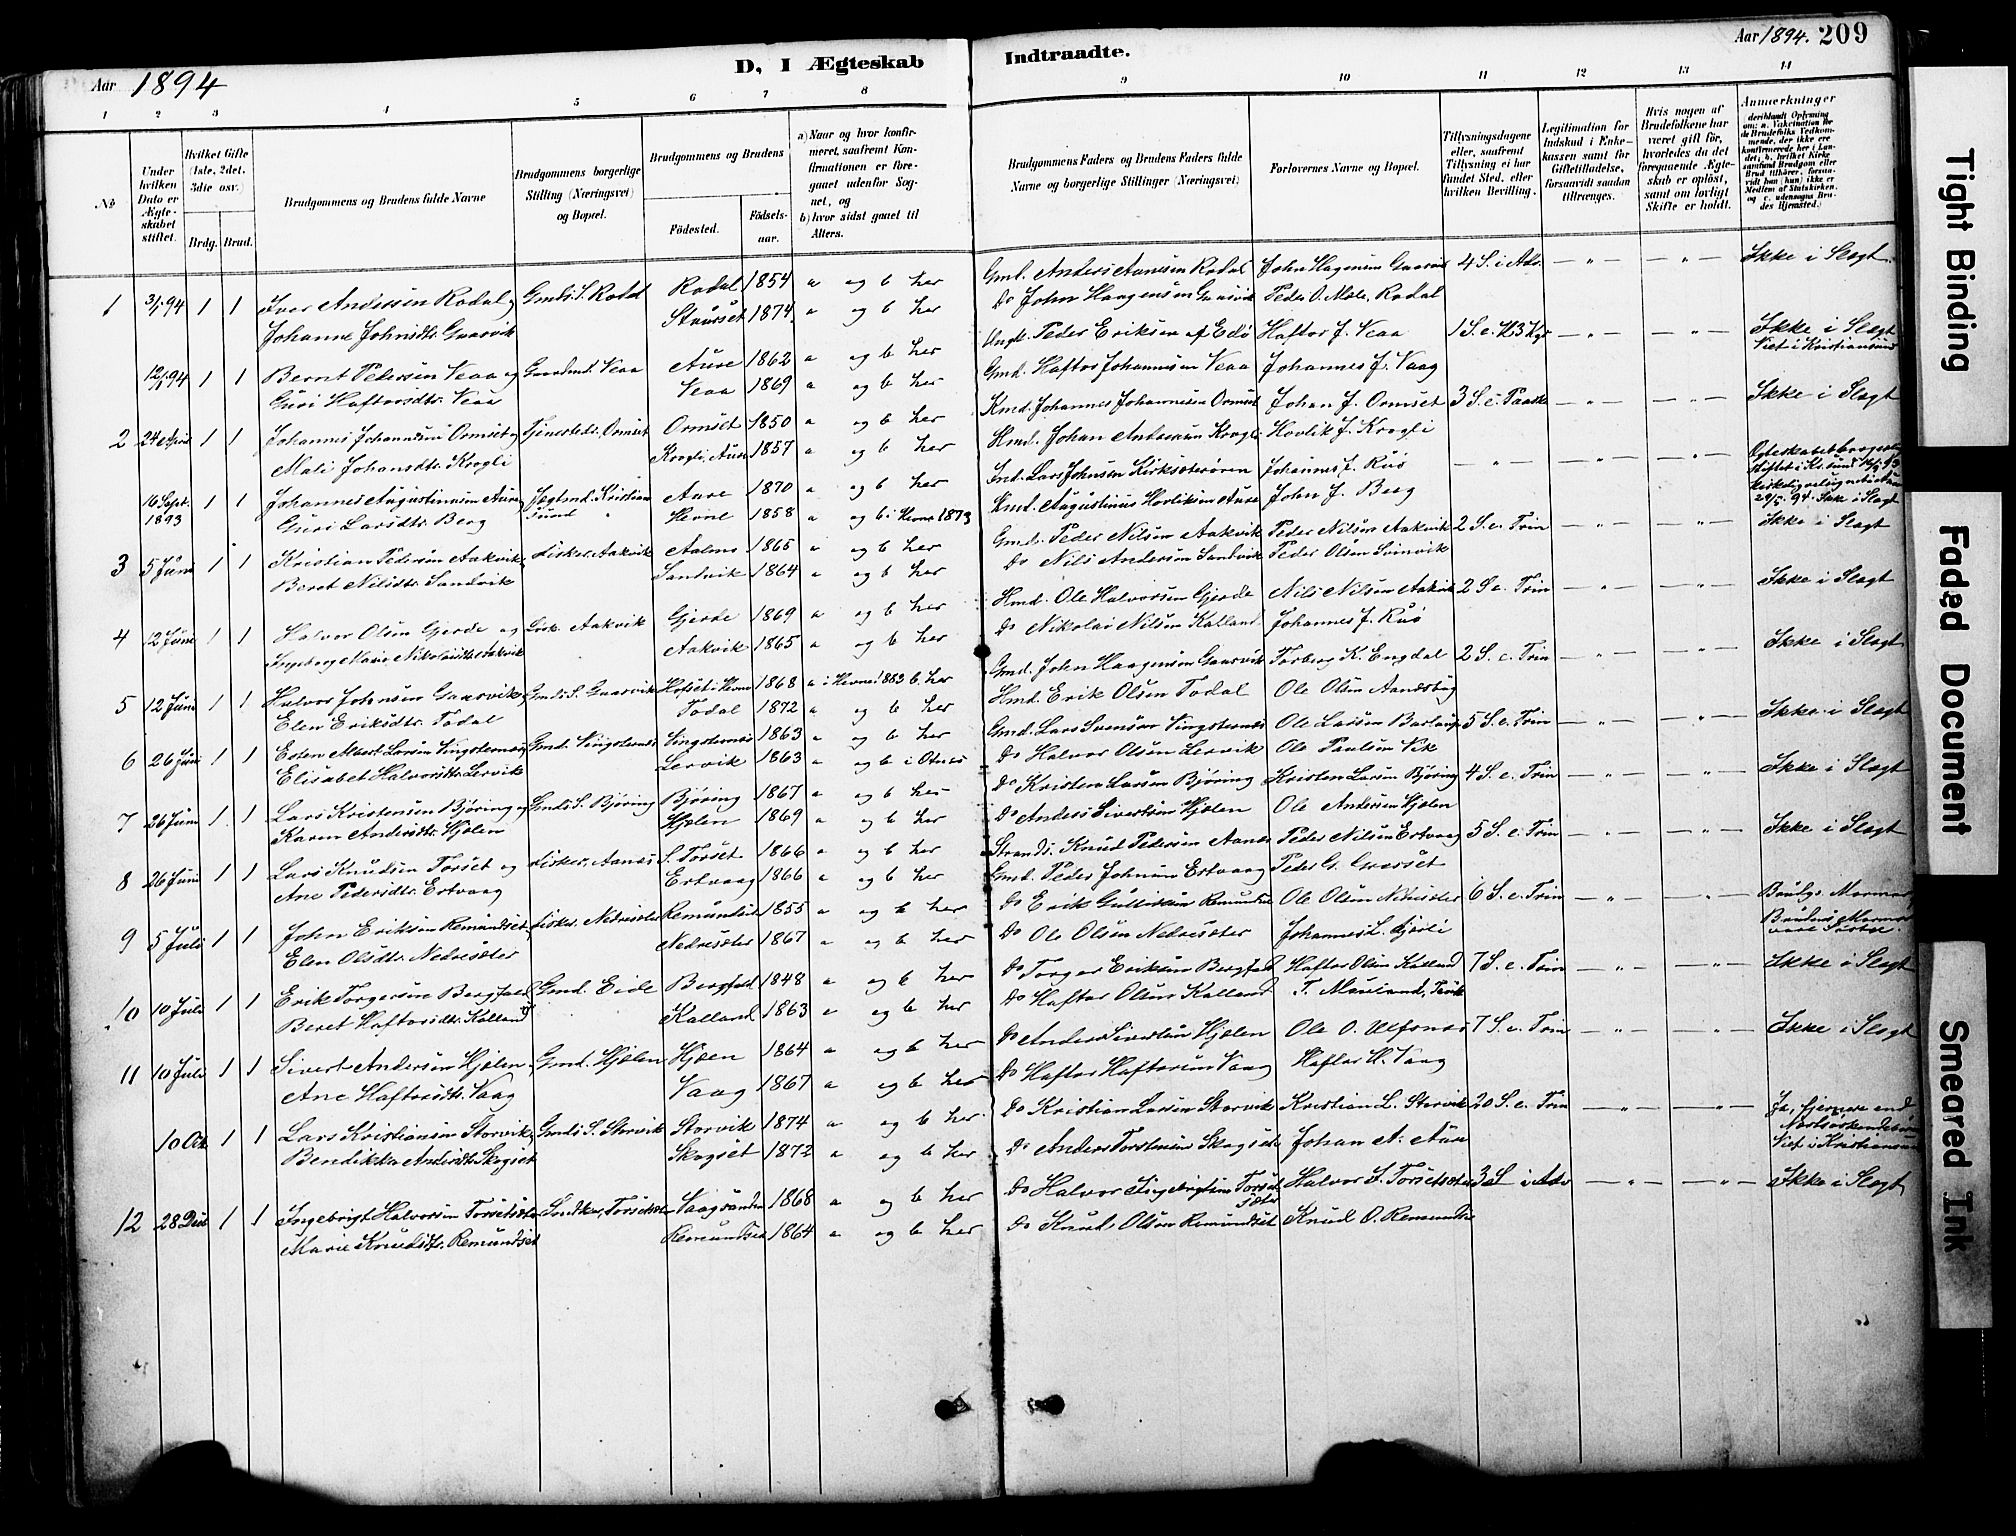 Aar 1894
D, I Ægteskab
Indtraadte.
Aar 1894. 209
1 2 3 4 5 6 7 8 9 10 11 12 13 14
No
Under hvilken Dato er Ægteskabet stiftet.
Hvilket Gifte (1ste, 2det, 3die osv.)
Brdg. Brud.
Brudgommens og Brudens fulde Navne
Brudgommens borgerlige Stilling (Næringsvei) og Bopæl.
Brudgommens og Brudens
Födested.
Födselsaar.
a) Naar og hvor konfirmeret, saafremt Konfirmationen er foregaaet udenfor Sognet, og
b) hvor sidst gaaet til Alters.
Brudgommens Faders og Brudens Faders fulde Navne og borgerlige Stillinger (Næringsvei)
Forlovernes Navne og Bopæl.
Tillysningsdagene eller, saafremt Tillysning ei har fundet Sted, efter hvilken Bevilling.
Legitimation for Indskud i Enkekassen samt for Giftetilladelse, forsaavidt saadan tiltrænges.
Hvis nogen af Brudefolkene har været gift för, hvorledes da det foregaaende Ægteskab er oplöst, samt om lovligt Skifte er holdt.
Anmerkninger
1 3/1 94 1 1 Iver Anderssen Rodal og Gmds S. Rodal Rodal 1854 a og b her Gmd. Anders Aunesen Rodal John Hagensen Gaasvik 4 S. i Adv. Ikke i Slegt
Johanne Johnsdtr. Gaasvik Staurset 1874 a og b her Do John Haagensen Gaasvik Peder O. Mele, Rodal
12/1 94 1 1 Bernt Pedersen Veaa og Gaardmd. Veaa Aure 1862 a og b her Ungk. Peder Eriksen af Edö Haftor J. Veaa 1 S. e. H 3 Kgr Ikke i Slegt
Guri Haftorsdtr. Veaa Veaa 1869 a og b her Gmd. Haftor Johannesen Veaa Johannes J. Vaag Viet i Kristiansund
2 24 April 1 1 Johannes Johannesen Ormset og Tjenestedr. Ormset Ormset 1850 a og b her Kmd. Johannes Johannesen Ormset Johan J. Ormset 3 S. e. Paaske Ikke i Slegt
Mali Johansdtr. Krogli Krogli, Aure 1857 a og b her Hmd. Johan Andersen Krogli Hovlik J. Krogli
16 Sept. 1893 1 1 Johannes Augustinusen Aure, Jegtmd. Kristiansund Aure 1870 a og b her Ind. Lars Johnsen Kirksæterören Johannes J. Ruö
Guri Larsdtr. Berg Hevne 1858 a og b i Hevne 1873 Hmd. Augustinus Hovliksen Aure John J. Berg 29/5 94. Ikke i Slegt
3 5 Juni 1 1 Kristian Pedersen Aakvik, Fisker, Aakvik 1865 a og b her Gmd. Peder Nilsen Aakvik Peder Nilsen Aakvik 2 S. e. Trin Ikke i Slegt
Beret Nilsdtr. Sandvik Sandvik 1864 a og b her Do Nils Andersen Sandvik Peder Olsen Svinvik
4 12 Juni 1 1 Halvor Olsen Gjerde og Aakvik Gjerde 1869 a og b her Hmd. Ole Halvorsen Gjerde Nils Nilsen Aakvik 2 S. e. Trin Ikke i Slegt
Ingeborg Marie Nikolaisdtr. Aakvik Aakvik 1865 a og b her Do Nikolai Nilsen Kalland Johannes J. Ruö
5 12 Juni 1 1 Halvor Johnsen Gaasvik, Gmds S. Gaasvik Hofset i Hevne 1868 a i Hevne 1883 b her Gmd. John Haagensen Gaasvik Torberg K. Engdal 2 S. e. Trin Ikke i Slegt
Elen Eriksdtr. Todal Todal 1872 a og b her Hmd. Erik Olsen Todal Ole Olsen
6 26 Juni 1 1 Esten Larsen Singsternes Gmd. Singsternes Singsternes 1863 a og b her Gmd. Lars Svensen Singsternes Ole Larsen 5 S. e. Trin Ikke i Slegt
Elisabet Halvorsdtr. Lervik Lervik 1863 a og b i Otnes Do Halvor Olsen Lervik Ole Paulsen Vik
7 26 Juni 1 1 Lars Kristensen Bjøring og Gmds S. Bjøring Bjøring 1867 a og b her Do Kristen Larsen Bjøring Kristen Larsen Bjøring 4 S. e. Trin Ikke i Slegt
Karen Andersdtr. Hjelen Hjelen 1869 a og b her Do Anders Sivertsen Hjelen Ole Andersen Hjelen
8 26 Juni 1 1 Lars Knudsen Torset og Fisker, Aanes S. Torset 1866 a og b her Strands. Knud Pedersen Aanes Peder Nilsen Ertvaag 5 S. e. Trin Ikke i Slegt
Ane Pedersdtr. Ertvaag Ertvaag 1866 a og b her Gmd. Peder Johnsen Ertvaag Peder G.
9 5 Juli 1 1 John Eriksen Remundset, Fisker, Nedresæter Remundset 1855 a og b her Do Erik Gulliksen Remundset Ole Olsen Nedresæter 6 S. e. Trin
Elen Olsdtr. Nedresæter Nedresæter 1867 a og b her Do Ole Olsen Nedresæter Johannes L.
10 10 Juli 1 1 Erik Torgersen Bergfald Gmd. Eide Bergfald 1848 a og b her Do Torger Eriksen Bergfald Haftor Olsen Kalland 7 S. e. Trin Ikke i Slegt
Beret Haftorsdtr. Kalland Kalland 1863 a og b her Do Haftor Olsen Kalland
11 10 Juli 1 1 Sivert Andersen Hjelen Gmd. Hjelen Hjelen 1864 a og b her Do Anders Sivertsen Hjelen Ole O. Ulfsnes 7 S. e. Trin Ikke i Slegt
Ane Haftorsdtr. Vaag Vaag 1867 a og b her Do Haftor Haftorsen Vaag Haftor H. Vaag
10 Okt 1 1 Lars Kristiansen Storvik, Gmds S. Storvik Storvik 1874 a og b her Do Kristian Larsen Storvik Kristian L. Storvik 20 S. e. Trin Ja, fjernere end Nærsøskendebørn
Bendikka Andersdtr. Skogset Skogset 1872 a og b her Do Anders Torstensen Skogset Johan A. Aure Viet i Kristiansund
12 28 Dec 1 1 Ingebrigt Halvorsen Torsetsæter 1868 a og b her Do Halvor Ingebrigtsen Torsetsæter Halvor I. Torsetsæter 3 S. i Adv Ikke i Slegt
Marie Knudsdtr. Remundset Remundset 1864 a og b her Do Knud Olsen Remundset Knud O. Remundset
Tight Binding
Faded Document
Smeared Ink